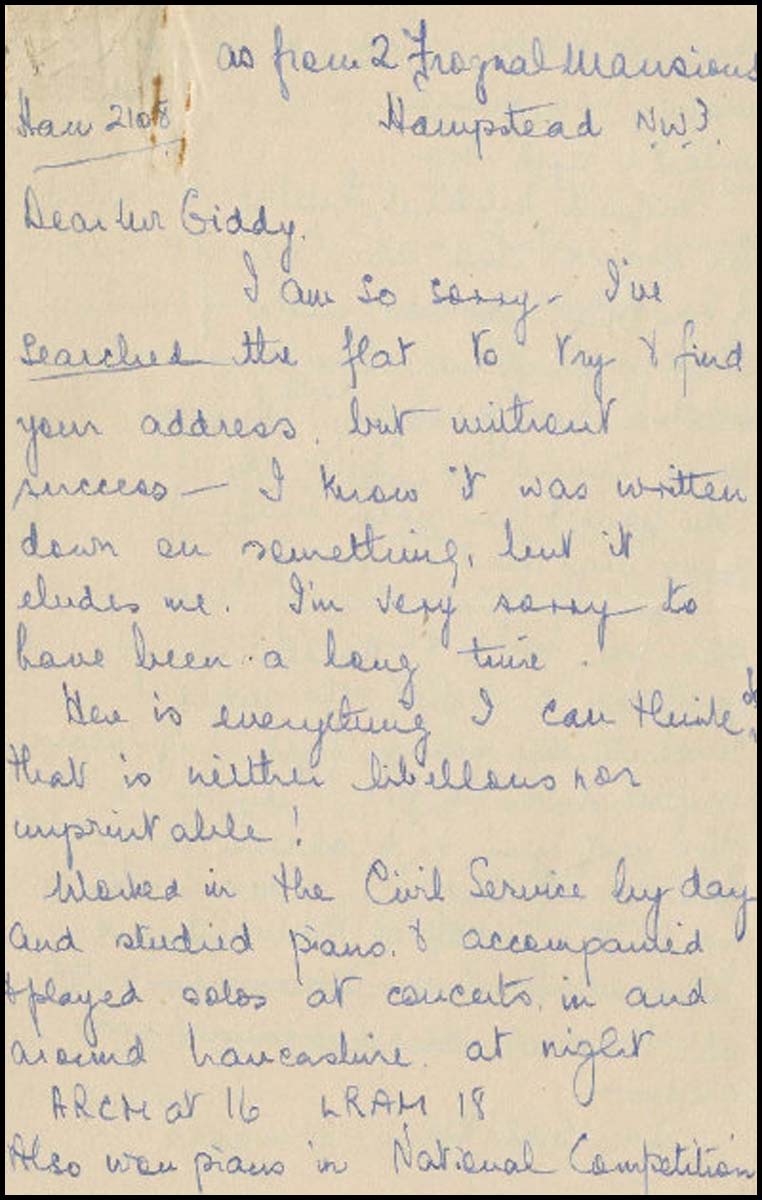 as from 2 Frognal Mansions
Ham 2108
Hampstead N.W.3.
Dear Mr Giddy,
I am so sorry - I've
searched the flat to try & find
your address, but without
success - I know it was written
down on something, but it
eludes me. I'm very sorry to
have been a long time.
Here is everything I can think of
that is neither libellous nor
unprintable!
Worked in the Civil Service by day
and studied piano, & accompanied
& played solos at concerts, in and
around Lancashire at night
ARCM at 16 LRAM 18
Also won piano in National Competition